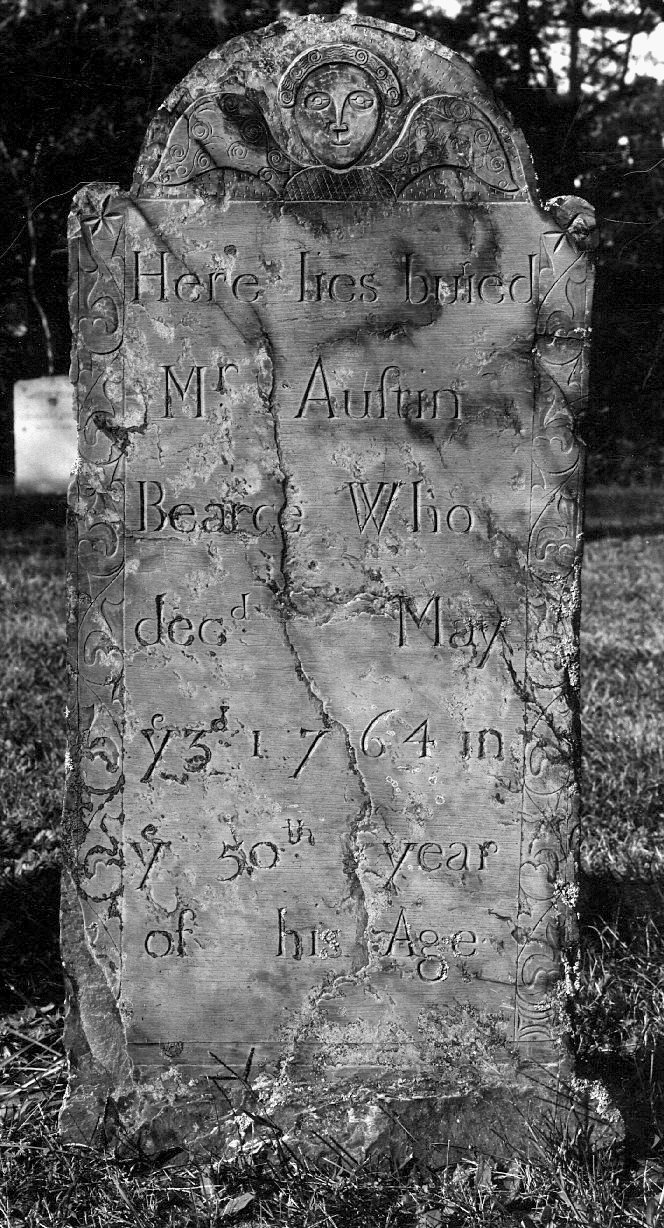 Here lies buried
Mr Auſtin
Bearce Who
decd May
ye 3d 1764 in
ye 50th year
of his Age